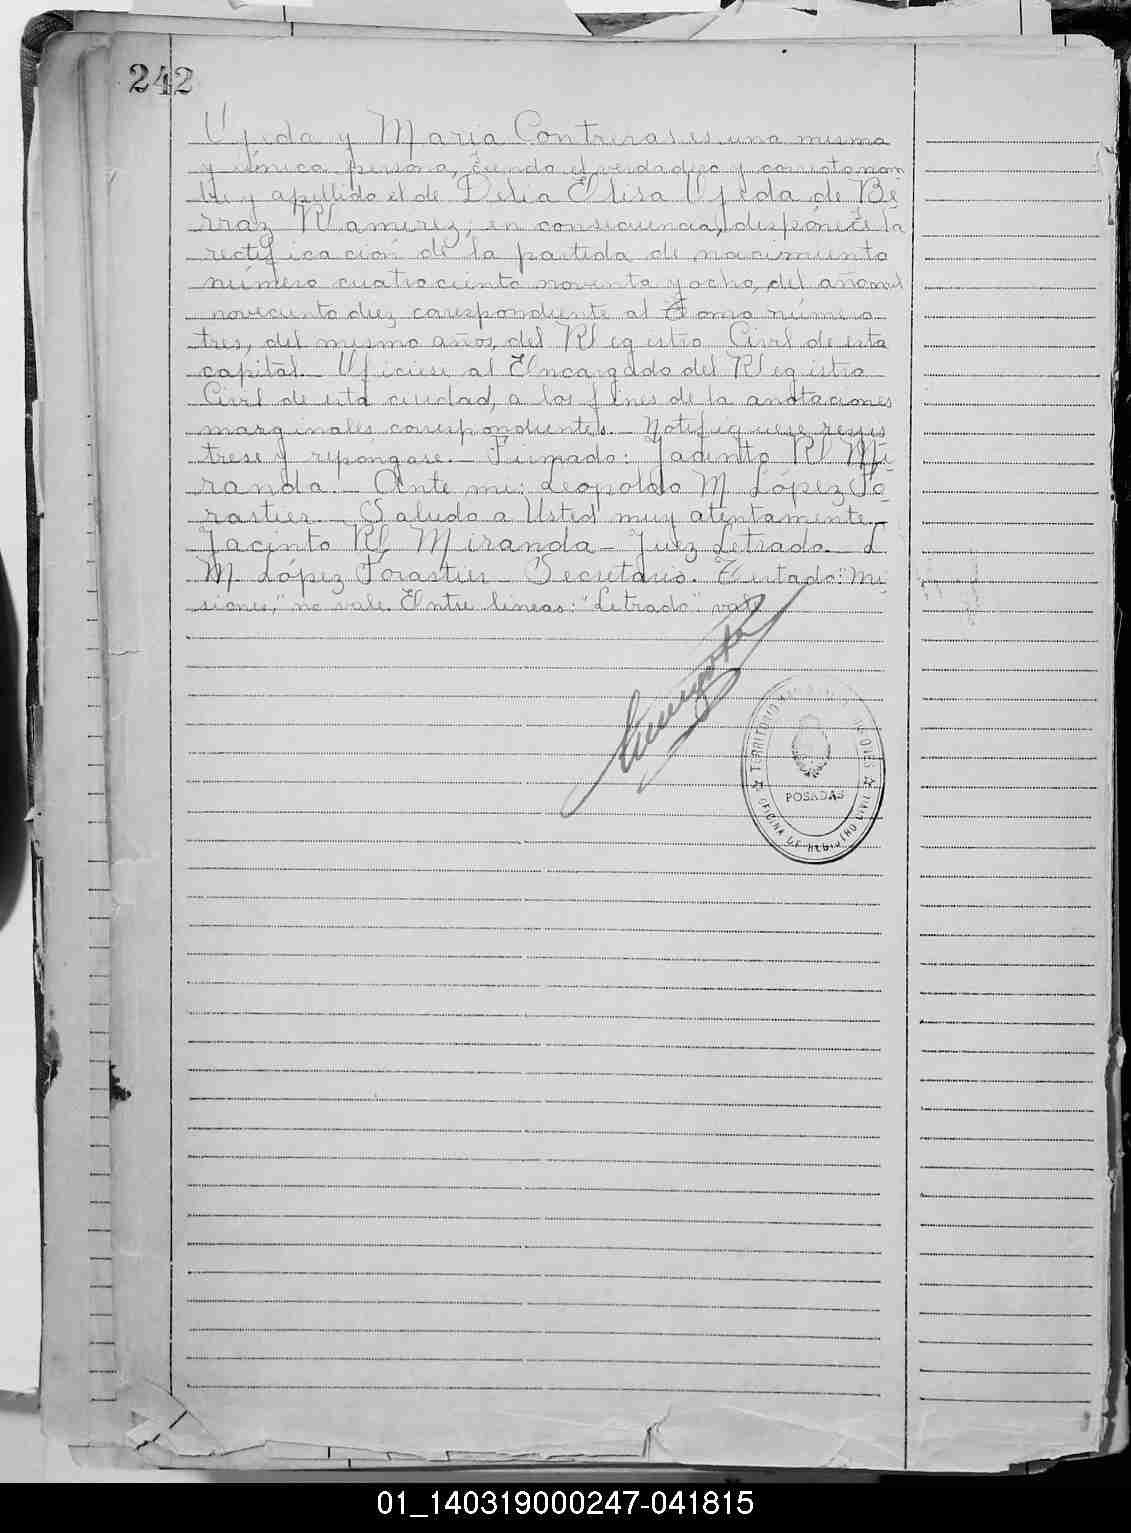 242
Ujeda y Maria Contreras es una misma
y única persona, siendo el verdadero y correcto nom
bre y apellido el de Delia Elisa Ujeda de Be
rraz Ramirez; en consecuencia, dispónese la
rectificación de la partida de nacimiento
número cuatrociento noventa y ocho, del año mil
noveciento diez correspondiente al Tomo número
tres, del mismo años, del Registro Civil de esta
capital. Ofíciese al Encargado del Registro
Civil de esta ciudad, a los fines de la anotaciones
marginales correspondientes. Notifiquese regis
trese y repóngase. Firmado: Jacinto R. Mi
randa. Ante mi: Leopoldo M. López Fo
rastier. Saludo a Usted muy atentamente.
Jacinto R. Miranda - Juez Letrado. L
M. López Forastier - Secretario. Testado: "Mi
siones," no vale. Entre lineas: "Letrado" vale
TERRITORIO NACIONAL DE MISIONES
POSADAS
OFICINA DE REGISTRO CIVIL
01_140319000247-041815